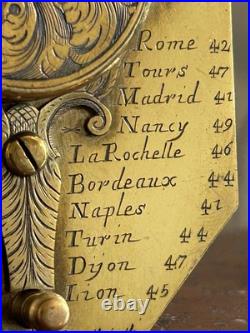 Rome 42
Tours 47
Madrid 41
Nancy 49
LaRochelle 46
Bordeaux 44
Naples 41
Turin 44
Dijon 47
Lion 45